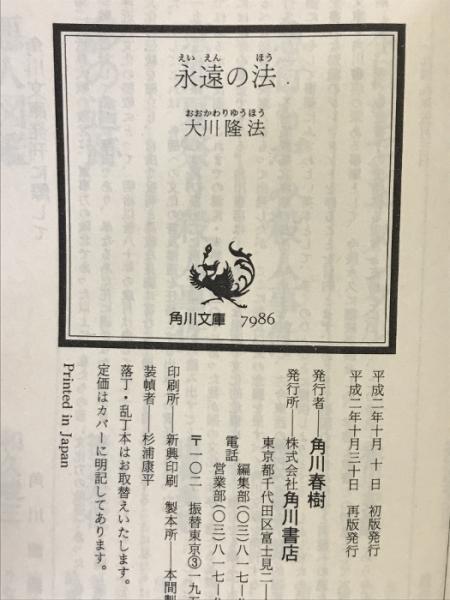 えいえん ほう
永遠の法
おおかわりゅうほう
大川隆法
角川文庫 7986
平成二年十月 十 日 初版発行
平成二年十月三十日 再版発行
発行者――角川春樹
発行所――株式会社角川書店
東京都千代田区富士見二―
電話 編集部(〇三)八一七―
営業部(〇三)八一七―
〒一〇二 振替東京③一九五
印刷所――新興印刷 製本所――本間製
装幀者――杉浦康平
落丁・乱丁本はお取替えいたします。
定価はカバーに明記してあります。
Printed in Japan